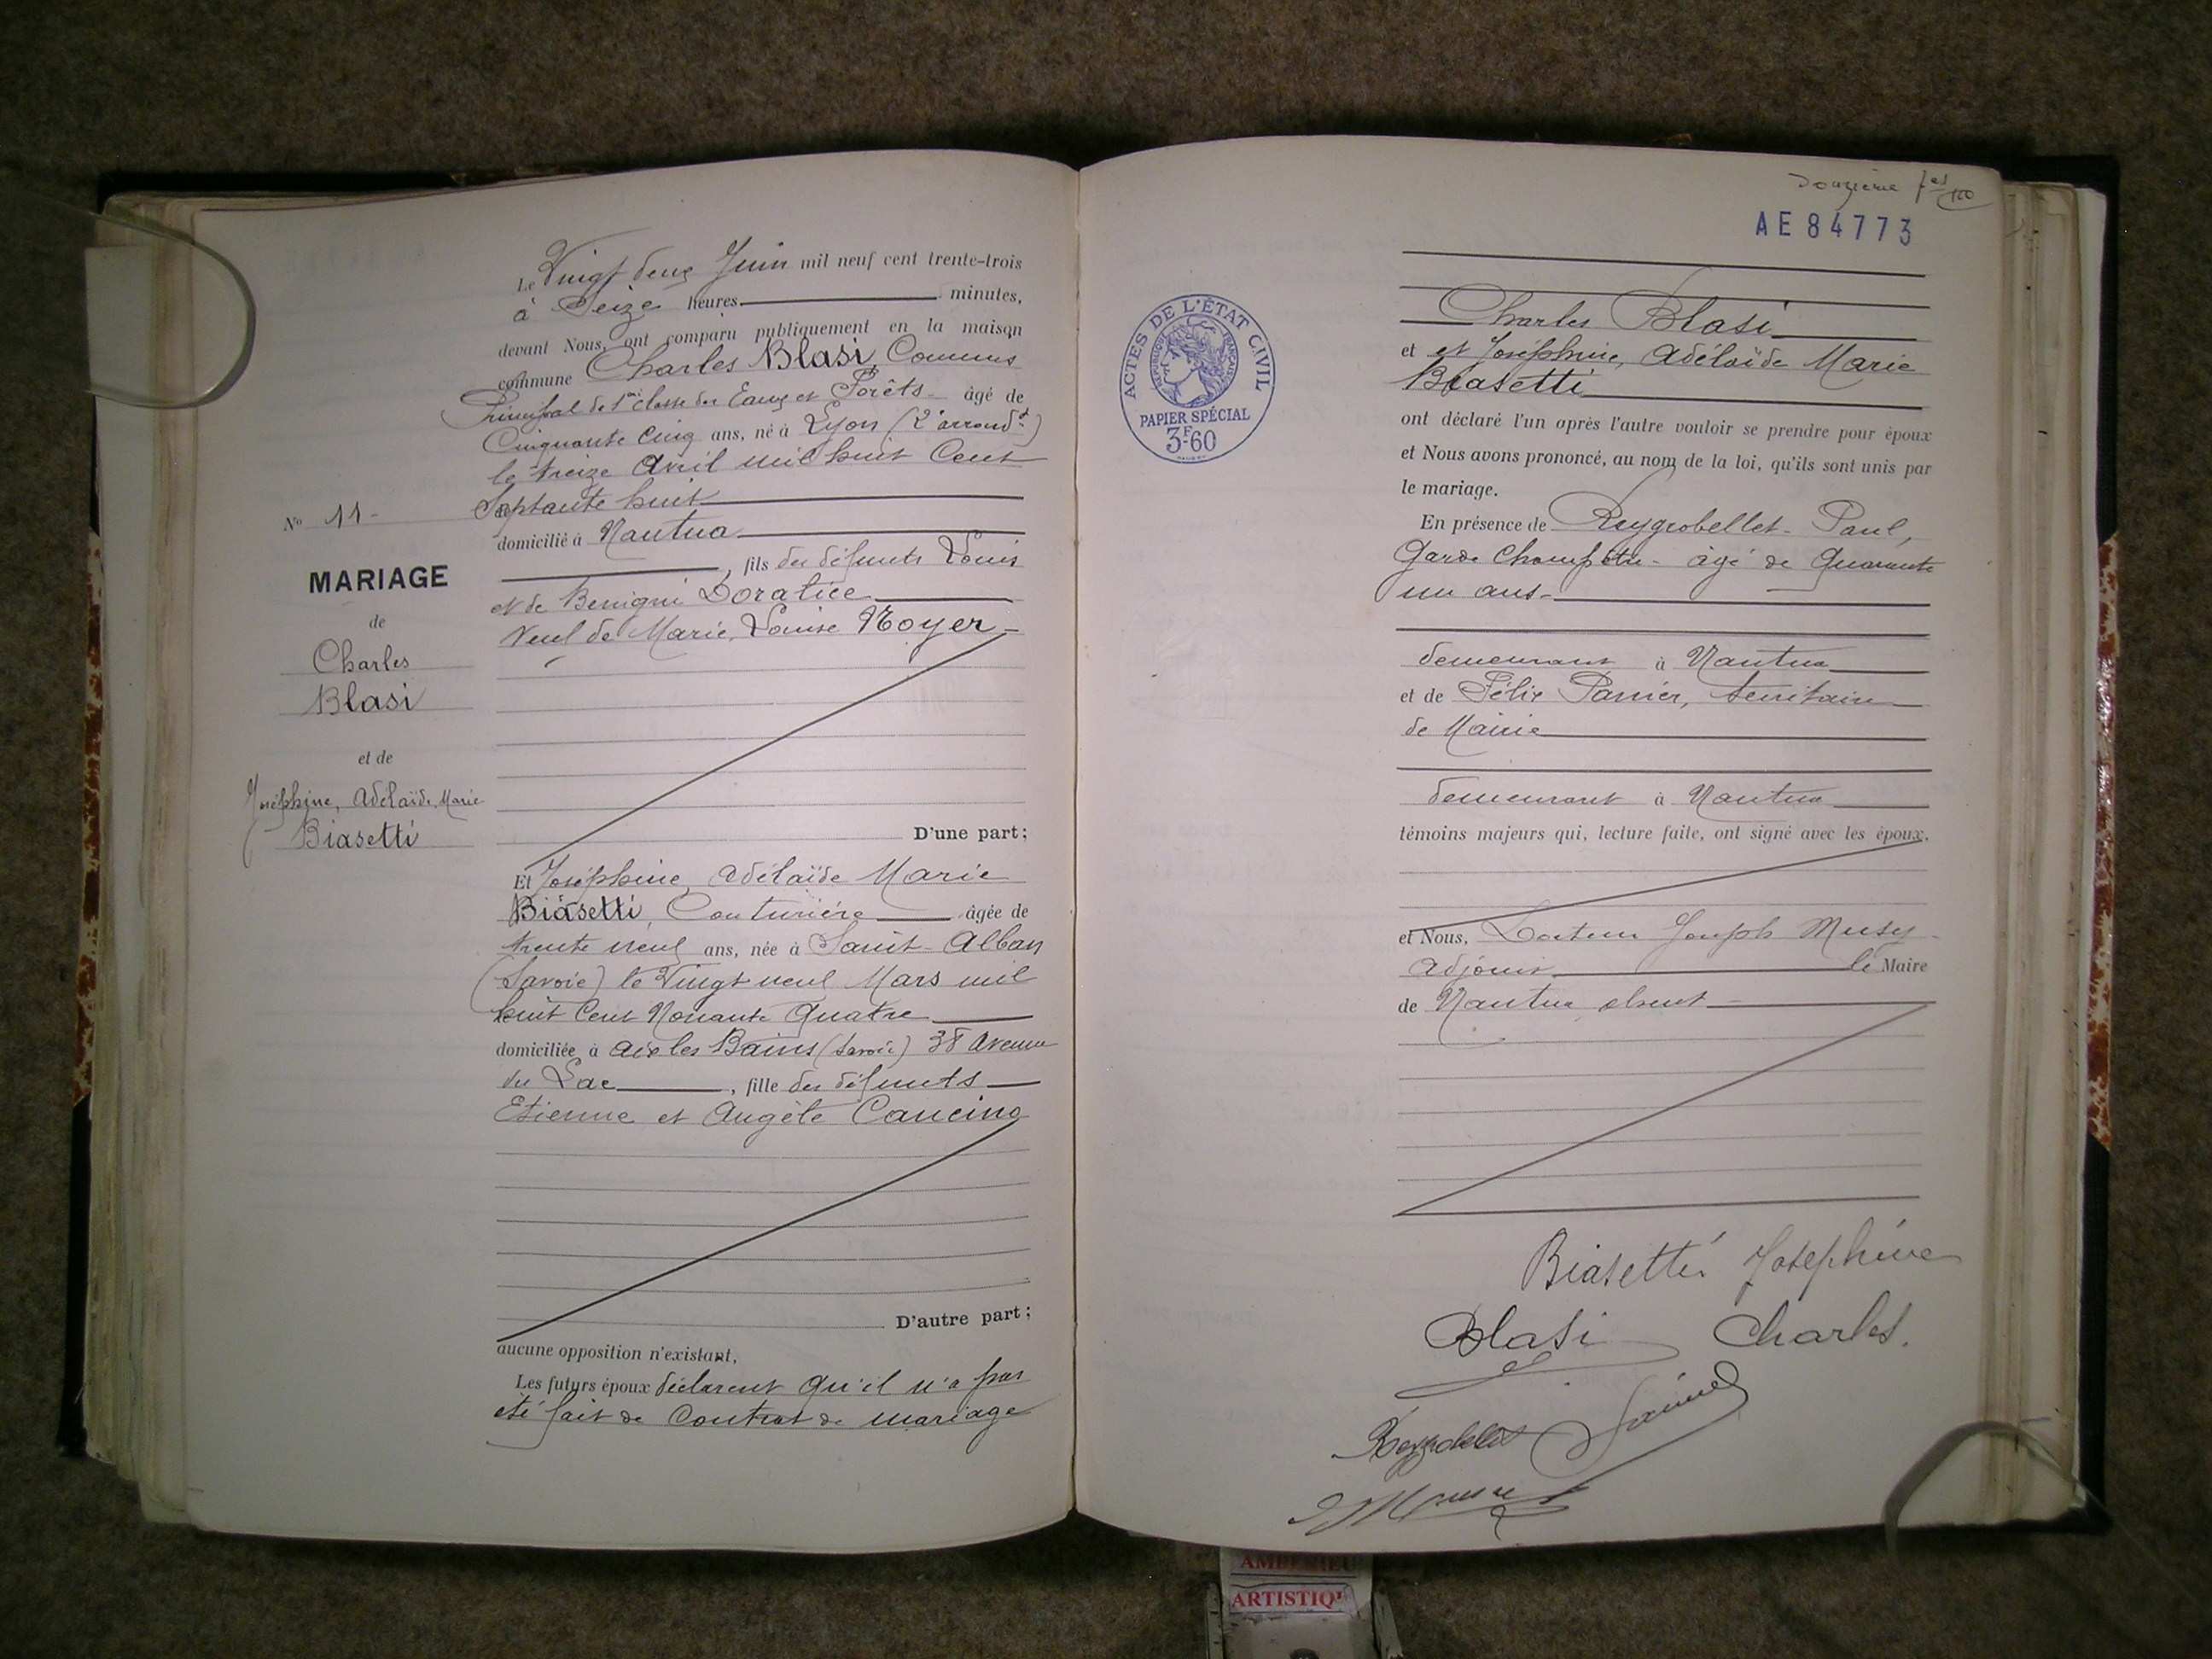 Le Vingt deux Juin mil neuf cent trente-trois
à Seize heures minutes,
devant Nous, ont comparu publiquement en la maison
commune Charles Blasi, Commis
Principal de 1ère classe des Eaux et Forêts âgé de
Cinquante Cinq ans, né à Lyon (2e arrondt)
le treize Avril mil huit Cent
Septante huit
domicilié à Nantua
, fils des défunts Louis
et de Benigni Doratice
Veuf de Marie, Louise Royer
D'une part;
Et Joséphine, Adélaïde Marie
Biasetti, Couturière âgée de
trente neuf ans, née à Saint-Alban
(Savoie) le Vingt neuf Mars mil
huit Cent Nonante Quatre
domiciliée à Aix les Bains (Savoie) 38 Avenue
du Lac, fille des défunts
Etienne et Angèle Cancino
D'autre part;
aucune opposition n'existant,
Les futurs époux déclarent qu'il n'a pas
été fait de Contrat de mariage
No 11-
MARIAGE
de
Charles
Blasi
et de
Joséphine, Adélaïde, Marie
Biasetti
Douzième
AE84773
ACTES DE L'ÉTAT CIVIL
RÉPUBLIQUE FRANÇAISE
PAPIER SPÉCIAL
3F60
Charles Blasi
et et Joséphine, Adélaïde Marie
Biasetti
ont déclaré l'un après l'autre vouloir se prendre pour époux
et Nous avons prononcé, au nom de la loi, qu'ils sont unis par
le mariage.
En présence de Reygrobellet Paul,
Garde Champêtre - âgé de Quarante
un ans-
demeurant à Nantua
et de Félix Panier, Secrétaire
de Mairie
demeurant à Nantua
témoins majeurs qui, lecture faite, ont signé avec les époux.
et Nous, Docteur Joseph Musy
Adjoint le Maire
de Nantua absent
Biasetti Josephine
Blasi Charles.
ARTISTIQ